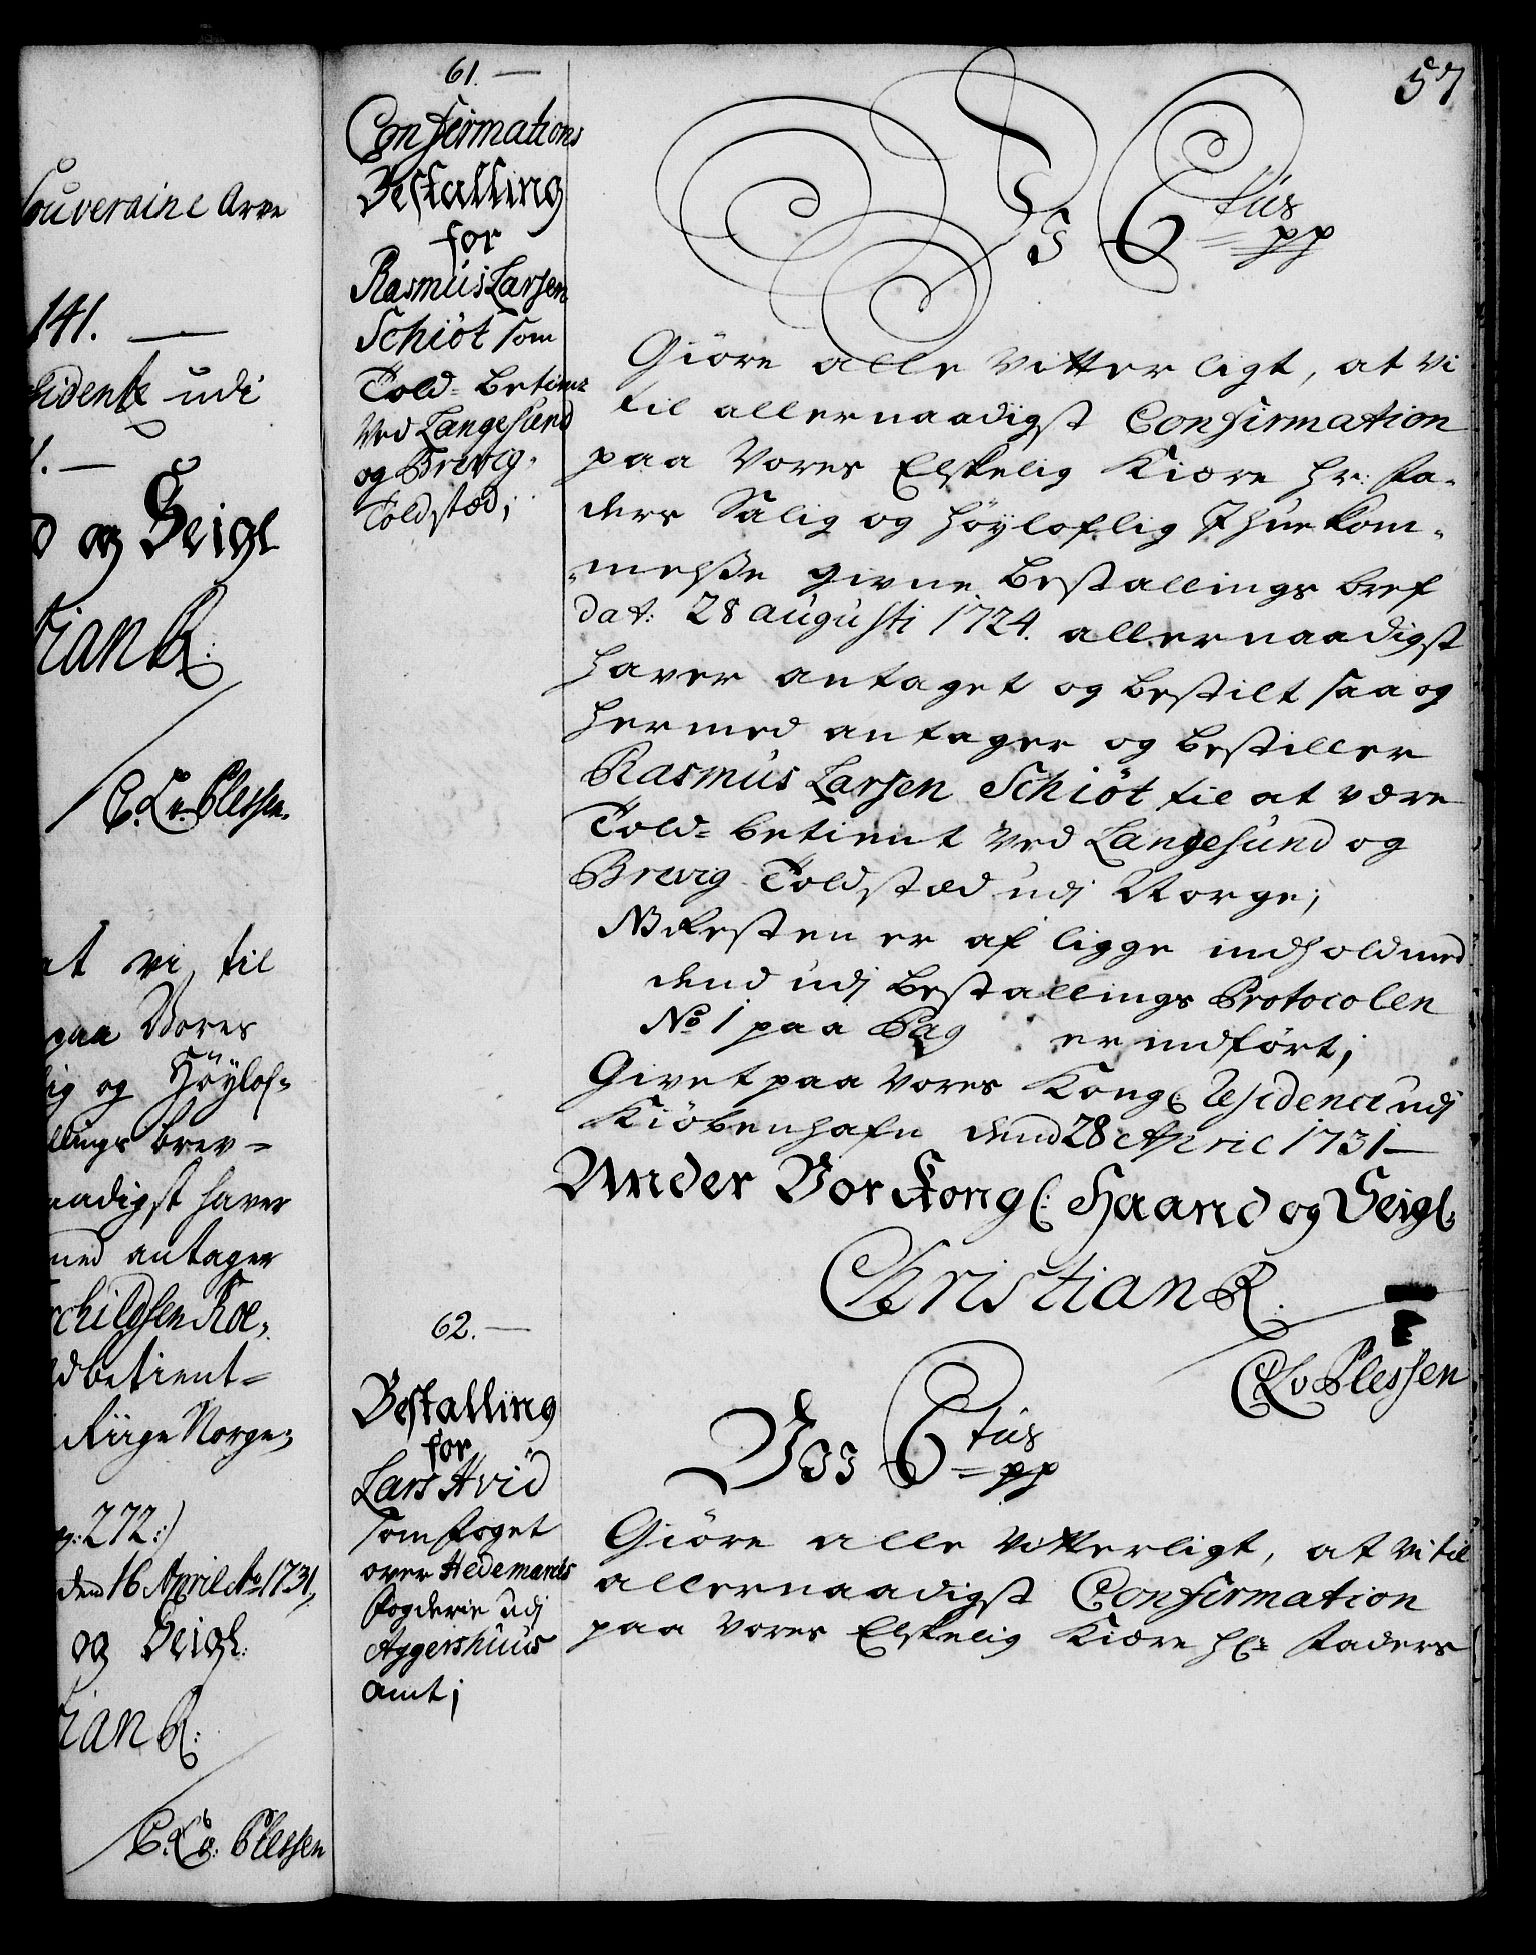 57
souveraine Arve
141. —
sidentz udi
1. —
d og Seigl
tian R:
C. L. v. Plessen.
at vi til
paa Vores
lig og Høylof=
llings brev=
naadigst haver
med antager
schildsen Roe,
ldbetient=
Riige Norge;
g: 272:)
den 16 April Ao 1731,
og Seigl:
tian R:
C. L. v: Plessen
61. —
Confirmations
Bestalling
for
Rasmus Larsen
Schiöt som
Told= betient
Ved Langesund
og Brevig
Toldstæd;
Vi C tus
pp
Giöre alle Vitterligt, at Vi
til allernaadigst Confirmation
paa Vores Elskelig Kiære Hr: Fa-
ders Salig og Høyloflig Ihukom-
melse givne bestallings bref
dat: 28 augusti 1724. allernaadigst
haver antaget og bestilt saa og
hermed antager og bestiller
Rasmus Larsen Schiöt til at være
Told= betient Ved Langesund og
Brevig Toldstæd udj Norge;
NB Resten er af ligge indhold med
dend udj bestallings Protocolen
No 1 paa Pag er indført;
Givet paa Vores Kongl: Residence udj
Kiöbenhafn dend 28 April 1731 —
Under Vor Kongl: Haand og Seigl:
Christian R.
CLv Plessen
62. —
Bestalling
for
Lars Hvid
som foget
over Hedemarcks
fogderie udj
Aggershuus
amt;
Vii C tus
pp
Giöre alle Vitterligt, at Vi til
allernaadigst Confirmation
paa Vores Elskelig Kiære Hr: Faders